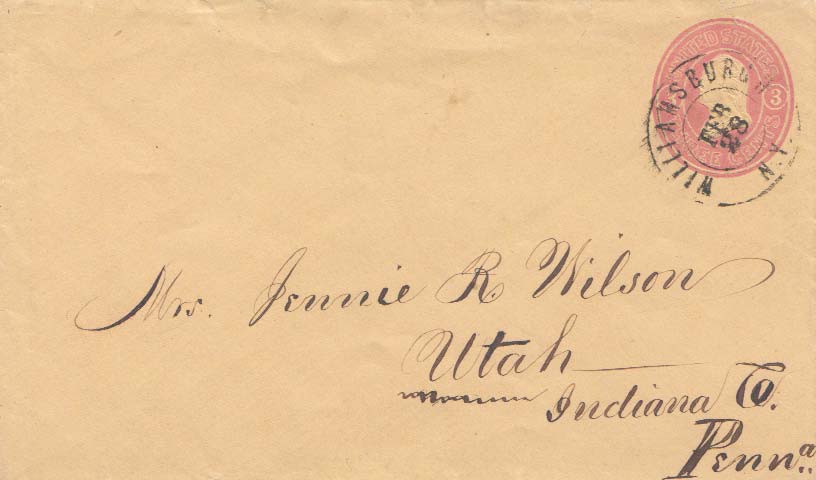 UNITED STATES
3
THREE CENTS
WILLIAMSBURGH N.Y.
FEB
28
Mrs. Jennie R. Wilson
Utah
Indiana Co.
Penna..